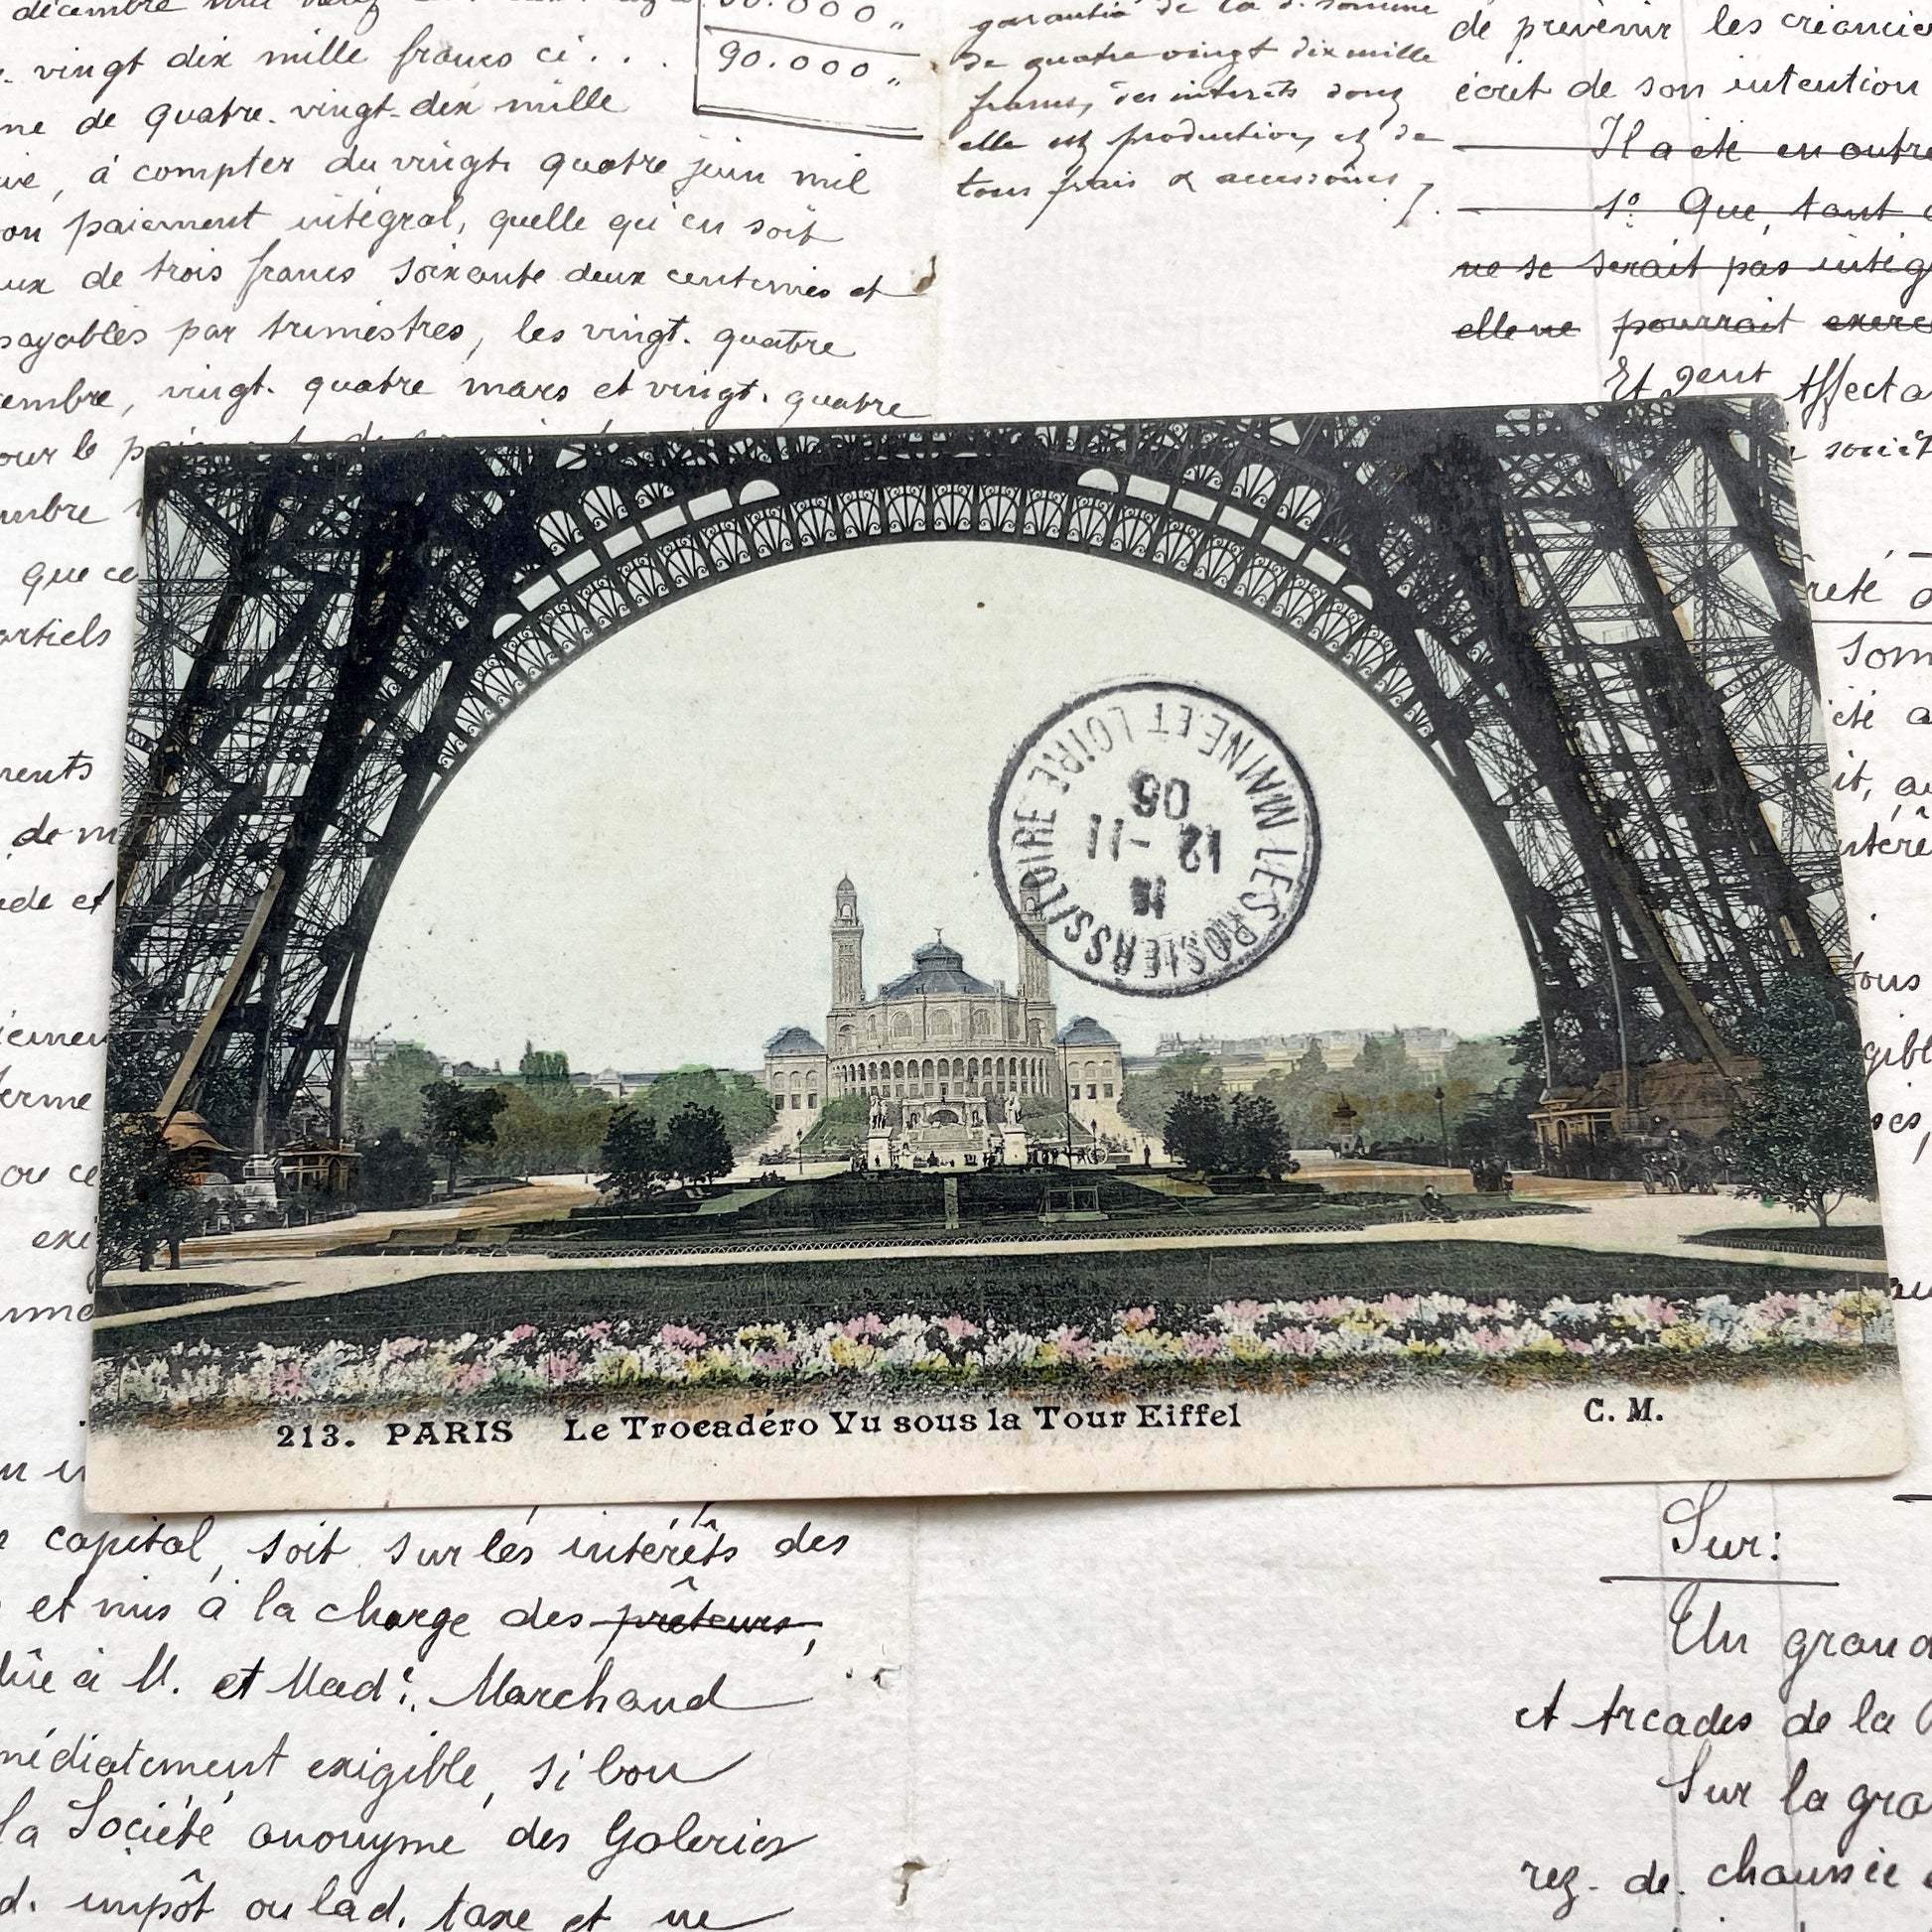 décembre mil
50.000 "
vingt dix mille francs ci...
90.000 "
ne de quatre-vingt-dix mille
, à compter du vingt quatre juin mil
on paiement intégral, quelle qu'en soit
ux de trois francs soixante deux centimes et
payables par trimestres, les vingt-quatre
embre, vingt-quatre mars et vingt-quatre
our le
embre
que ce
artiels
ments
de m
de et
iemen
erme
ou ce
garantie de la d. somme
de quatre vingt dix mille
francs, des intérêts dont
elle est productive, et de
tous frais & accessoires
de prévenir les créancie
écrit de son intention
Il a été en outre
1º Que, tant
ne se serait pas intég
elle ne pourrait exerc
Et Gent Affecta
sociét
reté d
som
été a
it, au
intérê
tous
gibl
ses,
LES ROSIERS S/ LOIRE
MAINE ET LOIRE
12 -11
06
213. PARIS Le Trocadéro Vu sous la Tour Eiffel
C. M.
capital, soit sur les intérêts des
et mis à la charge des prêteurs,
due à M. et Made. Marchand
médiatement exigible, si bon
la Société anonyme des Galeries
d. impôt ou lad. taxe et ne
Sur:
Un grand
et Arcades de la
Sur la gra
rez-de-chaussée